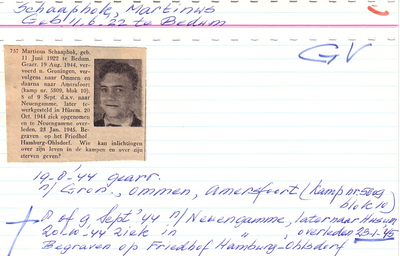 Schaaphok, Martinus
Geb 11.6.22 te Bedum
GV
757 Martinus Schaaphok, geb.
11 Juni 1922 te Bedum.
Gearr. 19 Aug. 1944, ver-
voerd n. Groningen, ver-
volgens naar Ommen en
daarna naar Amersfoort
(kamp nr. 5809, blok 10).
8 of 9 Sept. d.a.v. naar
Neuengamme, later te-
werkgesteld in Hüsem. 20
Oct. 1944 ziek opgenomen
en te Neuengamme over-
leden, 23 Jan. 1945. Be-
graven op het Friedhof
Hamburg-Ohlsdorf. Wie kan inlichtingen
over zijn leven in de kampen en over zijn
sterven geven?
19-8-'44 gearr.
n/ Gron., Ommen, Amersfoort (kamp nr 5809
blok 10)
8 of 9 Sept '44 n/ Neuengamme, later naar Husum
20-10-'44 ziek in " , overleden 23-1-'45
Begraven op Friedhof Hamburg-Ohlsdorf